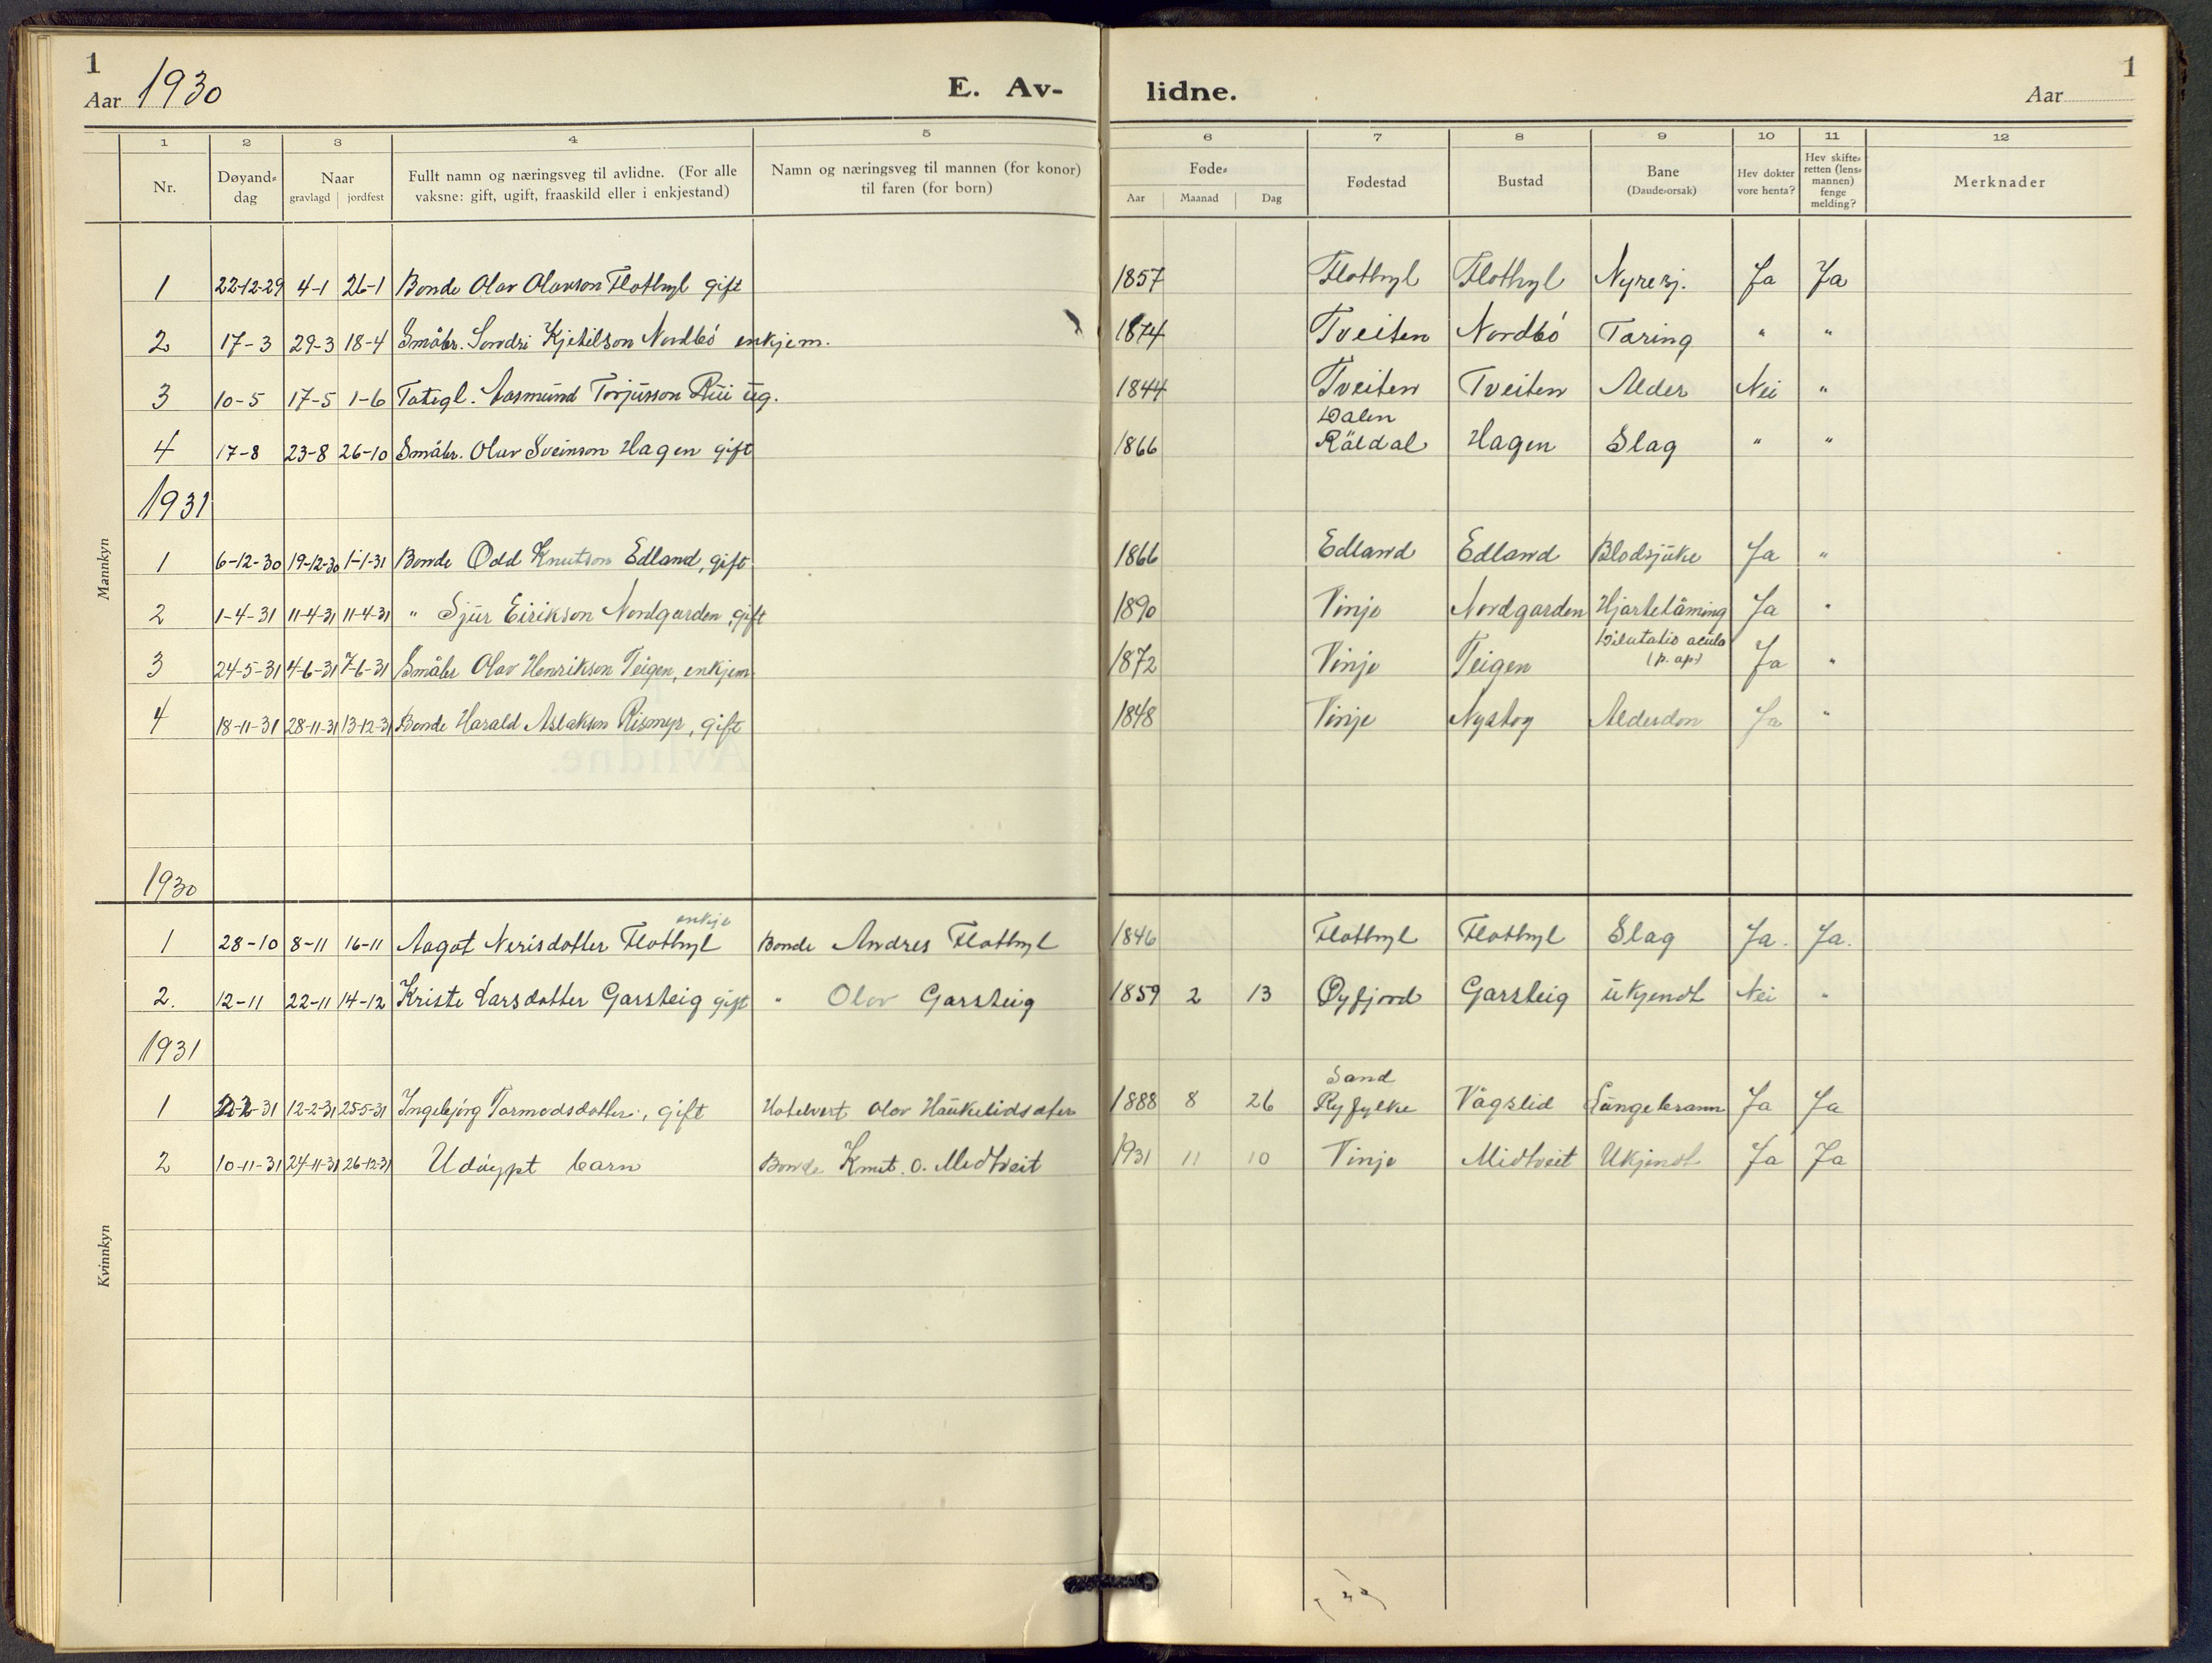 1
Aar 1930
E. Av-
lidne.
Aar
1
1 2 3 4 5 6 7 8 9 10 11 12
Nr. | Døyand-dag | Naar gravlagd | jordfest | Fullt namn og næringsveg til avlidne. (For alle vaksne: gift, ugift, fraaskild eller i enkjestand) | Namn og næringsveg til mannen (for konor) til faren (for born) | Føde- Aar | Maanad | Dag | Fødestad | Bustad | Bane (Daude-orsak) | Hev dokter vore henta? | Hev skifte-retten (lens-mannen) fenge melding? | Merknader
Mannkyn
1 22-12-29 4-1 26-1 Bonde Olav Olavson Flothyl gift 1857 Flothyl Flothyl Nyresj. Ja Ja
2 17-3 29-3 18-4 Småbr. Sondri Kjetilson Nordbó enkjem. 1874 Tveiten Nordbó Tæring " "
3 10-5 17-5 1-6 Aasmund Torjusson Rui ug. 1844 Tveiten Tveiten Alder Nei "
4 17-8 23-8 26-10 Småbr. Olav Sveinson Hagen gift 1866 Dalen Räldal Hagen Slag " "
1931
1 6-12-30 19-12-30 1-1-31 Bonde Odd Knutson Edland, gift 1866 Edland Edland Blodsjuke Ja "
2 1-4-31 11-4-31 11-4-31 " Sjur Eirikson Nordgarden, gift 1890 Vinje Nordgarden Hjartelåming Ja "
3 24-5-31 4-6-31 7-6-31 Småbr Olav Henrikson Teigen, enkjem. 1872 Vinje Teigen Dilutatio acuta (p. ap) Ja "
4 18-11-31 28-11-31 13-12-31 Bonde Harald Aslakson Risomyr, gift 1848 Vinje Nystog Alderdon Ja "
1930
Kvinnkyn
1 28-10 8-11 16-11 Aagot Nerisdotter Flothyl enkje Bonde Andres Flothyl 1846 Flothyl Flothyl Slag Ja. Ja.
2. 12-11 22-11 14-12 Kriste Larsdotter Garsteig gift " Olav Garsteig 1859 2 13 Øyfjord Garsteig ukjendt Nei "
1931
1 2-2-31 12-2-31 25-5-31 Ingebjórg Tormodsdotter, gift Hotelvert Olav Haukelidsæter 1888 8 26 Sand Ryfylke Vågslid Lungebrann Ja Ja
2 10-11-31 24-11-31 26-12-31 Udóypt barn Bonde Knut O. Midtveit 1931 11 10 Vinje Midtveit Ukjendt Ja Ja